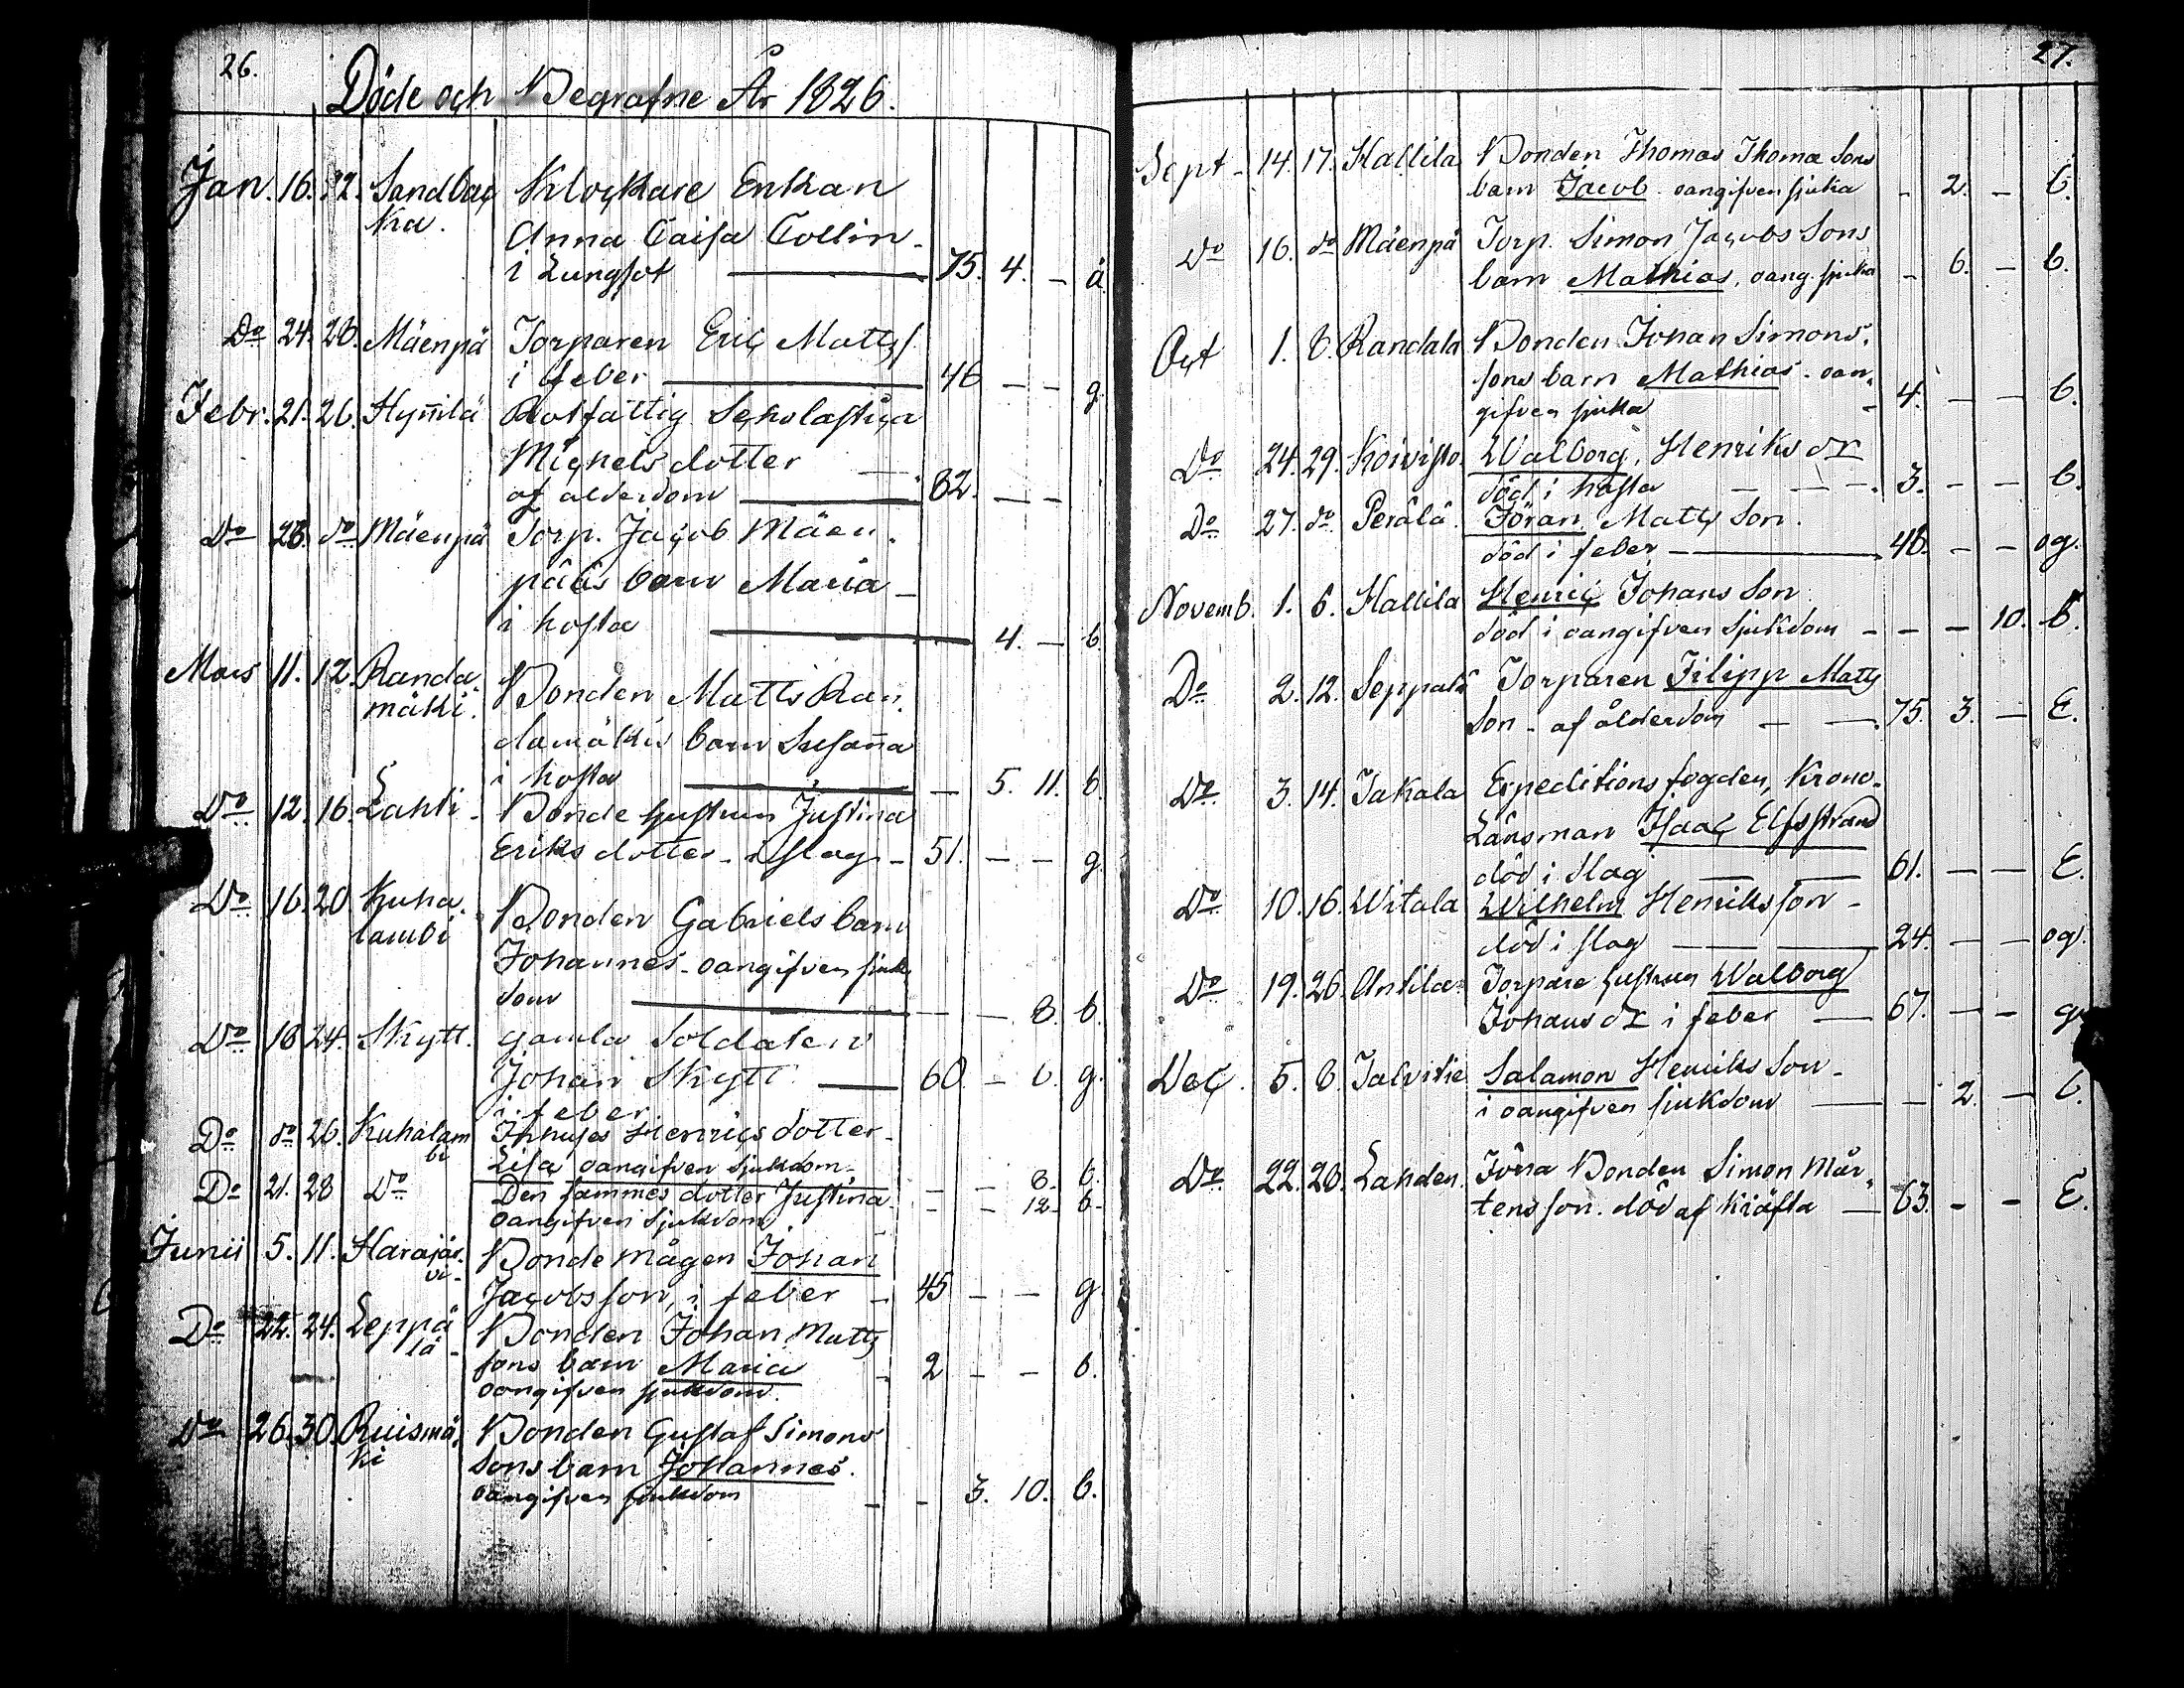 26.
Döde och Begrafne År 1826.
Jan. 16. 22. Sandbac Klockare Enkan
ka. Anna Caisa Collin
i Lungsot 75. 4. - ä.
Do 24. 28. Mäenpä Torparen Eric Matts
i feber 46 - - g.
Febr. 21. 26. Hynnilä Rotfattig Scholastica
Michels dotter
af ålderdom 82. - -
Do 28. do Mäenpä Torp. Jacob Mäen
pääs barn Maria
i hosta 4. - b.
Mars 11. 12. Randa Bonden Matts Ran
mäki. damäkis barn Susanna
i hosta - 5. 11. b.
Do 12. 16. Lahti Bonde hustrun Justina
Eriks dotter i slag 51. - - g.
Do 16. 20 Kuha Bonden Gabriels barn
lambi Johannes oangifven sjuk
dom - - 8. b.
Do 18 24. Skytt. gamla Soldaten
Johan Skytt 60. - 6. g.
i feber.
Do do 26. Kuhalam Inhyses Henrics dotter
bi Lisa oangifven sjukdom - - 8. b.
Do 21. 28 Do Den sammes dotter Justina
oangifven sjukdom - - 12. b.
Junii 5. 11. Harajär Bonde mågen Johan
vi Jacobs son, i feber 45 - - g.
Do 22. 24. Leppä Bonden Johan Matts
lä sons barn Maria 2 - - b.
oangifven sjukdom.
Do 26. 30. Ruismä Bonden Gustaf Simons
ki sons barn Johannes.
oangifven sjukdom - 3. 10. b.
27.
Sept. 14. 17. Hallila Bonden Thomas Thomæ Sons
barn Jacob. oangifven sjuka - 2. - b.
Do 16. do Mäenpä Torp. Simon Jacobs Sons
barn Mathias, oang. sjuka - 6. - b.
Oct 1. 8. Randala Bonden Johan Simons
sons barn Mathias. oan
gifven sjuka 4. - - b.
Do 24. 29. Koivisto Walborg, Henriks dr
död i hosta 3. - - b.
Do 27. do Perälä. Jöran Matts Son.
död i feber 48. - - og.
Novemb. 1. 6. Hallila Henric Johans Son
död i oangifven Sjukdom - - 10. b.
Do 2. 12. Seppälä Torparen Filipp Matts
Son - af ålderdom 75. 3. - E.
Do 3. 14. Jakala Expeditions fogden, Krono
Länsman Isaac Elfsstrand
död i slag 61. - - E.
Do 10. 16. Witala Wilhelm Henriksson
död i slag 24. - - og.
Do 19. 26. Antila Torpare hustrun Walborg
Johans dr i feber 67. - - g.
Dec. 5. 8. Jalvitie Salamon Henriks Son
i oangifven sjukdom - 2. - b.
Do 22. 28. Lahden. Förra Bonden Simon Mår
tens son. död af Kräfta 63. - - E.